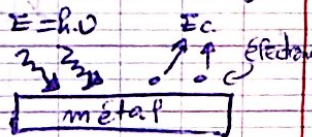 E = h.υ
Ec
électron
métal